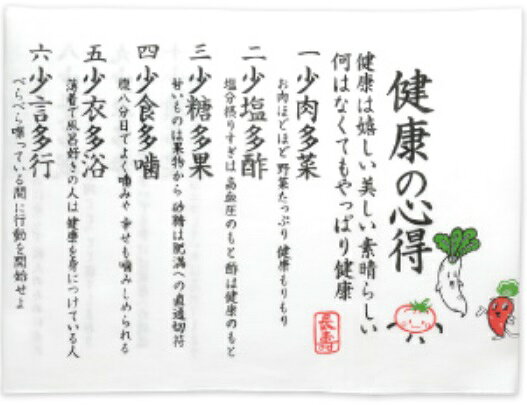 健康の心得
健康は嬉しい美しい素晴らしい
何はなくてもやっぱり健康
一 少肉多菜
お肉ほどほど 野菜たっぷり 健康もりもり
二 少塩多酢
塩分摂りすぎは高血圧のもと 酢は健康のもと
三 少糖多果
甘いものは果物から 砂糖は肥満への直通切符
四 少食多噛
腹八分目でよく噛みや 幸せも噛みしめられる
五 少衣多浴
薄着で風呂好きの人は 健康を身につけている人
六 少言多行
べらべら喋っている間に行動を開始せよ
長寿